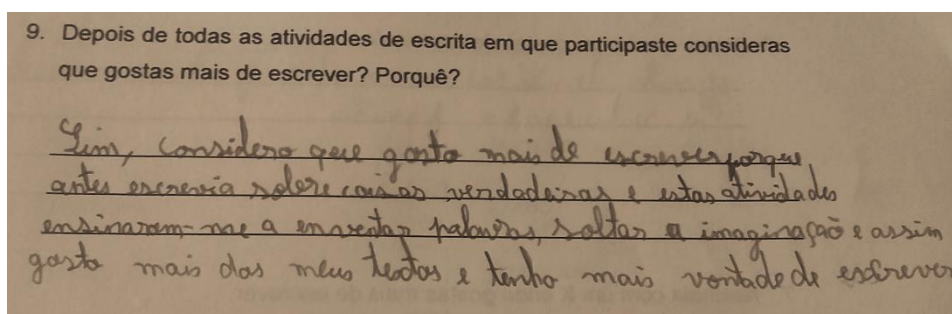 9. Depois de todas as atividades de escrita em que participaste consideras
que gostas mais de escrever? Porquê?
Sim, considero que gosto mais de escrever porque
antes escrevia sobre coisas verdadeiras e estas atividades
ensinaram-me a enventar palavras, soltar a imaginação e assim
gosto mais dos meus textos e tenho mais vontade de escrever